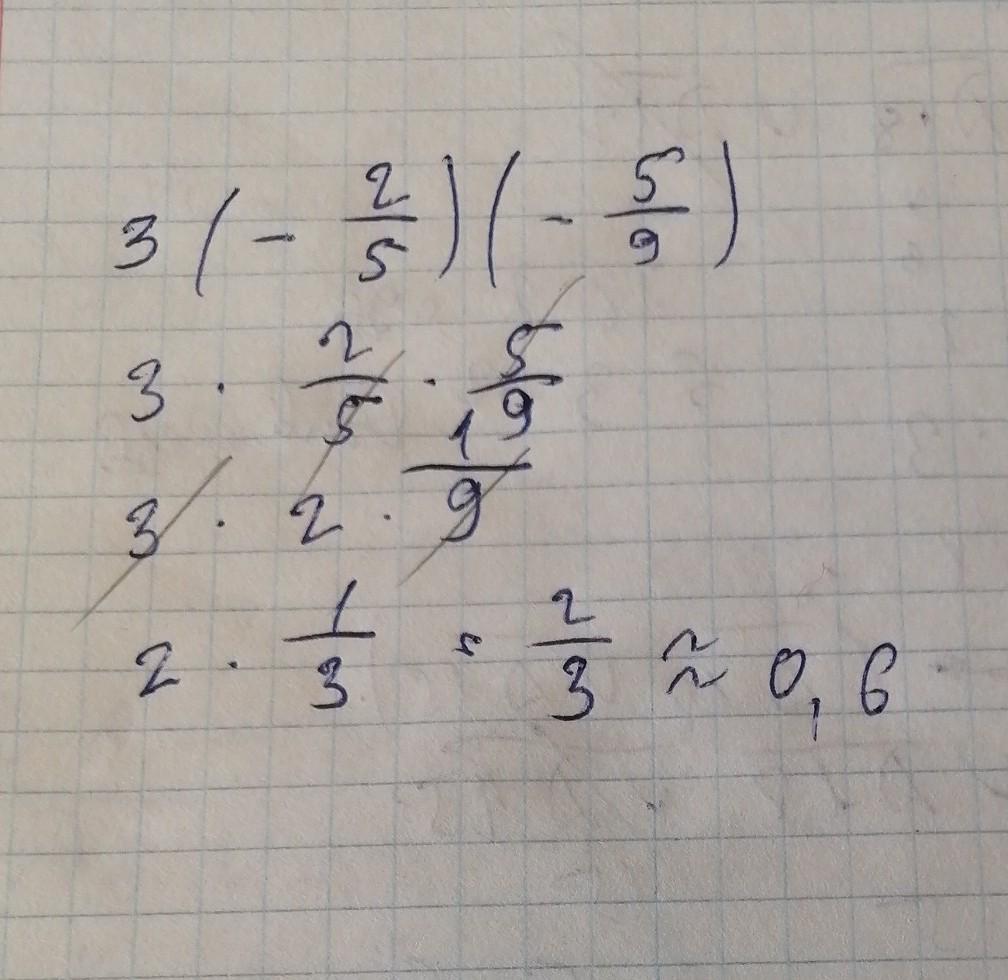 3 (- 2/5) (- 5/9)
3 · 2/5 · 5/9
3 · 2 · 1/9
2 · 1/3 = 2/3 ≈ 0,6